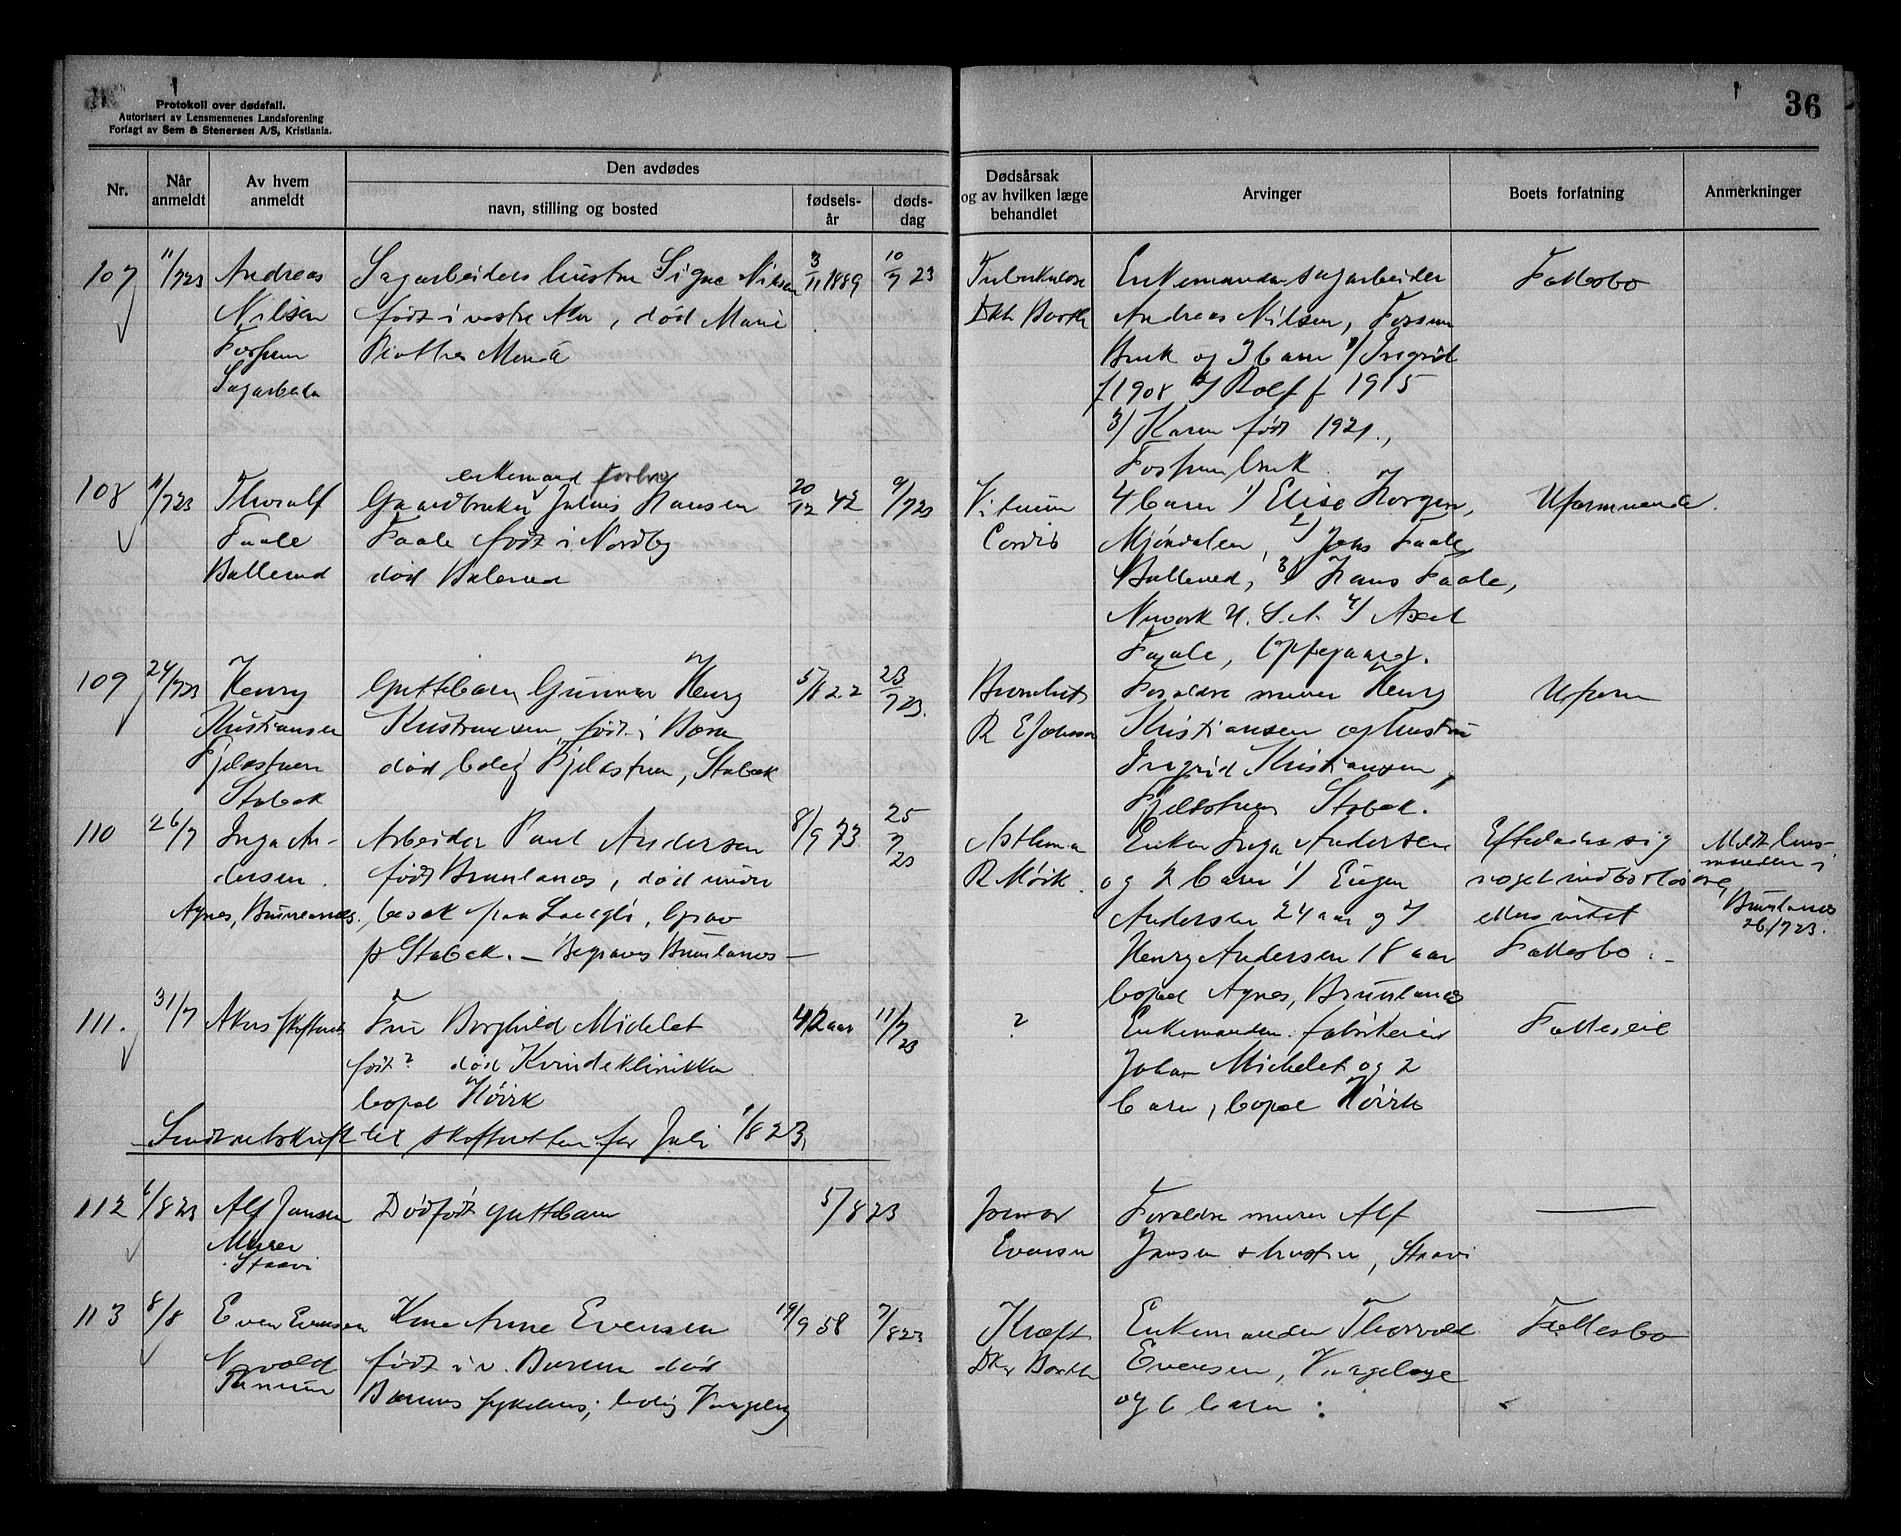 36
Protokoll over dødsfall.
Autorisert av Lensmennenes Landsforening
Forlagt av Sem & Stenersen A/S, Kristiania.
Nr.
Når anmeldt
Av hvem anmeldt
Den avdødes
navn, stilling og bosted
fødsels-år
døds-dag
Dødsårsak og av hvilken læge behandlet
Arvinger
Boets forfatning
Anmerkninger
107
11/7 23
Andreas
Nilsen
Fossum
Sagarbeider
Sagarbeiders hustru Signe Nilsen
født i vestre Aker, død Marie
3/11 1889
10/7 23
Tuberkulose
Barth
Enkemanden sagarbeider
Andreas Nilsen, Fossum
Bruk og 3 barn 1/ Ingrid
f 1908 2/ Rolf f 1915
3/ Karen født 1921.,
Fossum bruk.
Fællesbo
108
11/7 23
Thoralf
Faale
Ballerud
enkemand
Gaardbruker Julius Hansen
Faale født i Nordby
død Balerud
20/12 42
9/7 23
Vitium
Cordis
4 barn 1/ Elise Horgen,
Mjøndalen, 2/ Johs Faale
Ballerud, 3/ Hans Faale,
Newark U.S.A. 4/ Axel
Faale, Oppegaard.
Uformuende.
109
24/7 23
Henry
Kristiansen
Fjeldstuen
Stabæk
Guttebarn Gunnar Henry
Kristiansen, født i Bærum
død bolig Fjeldstuen, Stabæk
5/1 22
23/7 23.
Bronchit
Forældre murer Henry
Kristiansen og hustru
Ingrid Kristiansen,
Fjeldstuen Stabæk.
Uform
110
26/7
Inga An-
dersen.
Agnes, Brunlanes.
Arbeider Paul Andersen
født Brunlanes, død under
besøk paa
p Stabæk. — Begraves Brunlanes —
8/9 73
25/7 23
Asthma
R Mørk.
Enken Inga Andersen
og 2 barn 1/ Eugen
Andersen 24 aar og 2/
Henry Andersen 18 aar
bopæl Agnes, Brunlanes
Efterlader sig
noget indbo
ellers intet
Fællesbo. —
Meldt lens-
manden i
Brunlanes
26/7 23.
111.
31/7
Akers skifteret
Fru Borghild Michelet
født? død Kvindeklinikken
bopæl Høvik
42 aar
11/7 23
?
Enkemanden. fabrikeier
Johan Michelet og 2
barn, bopæl Høvik
Fælleseie
Sendt utskrift til skifteretten for Juli 1/8 23.
112
6/8 23
Alf Jansen
Murer
Staavi
Dødfødt guttebarn
5/8 23
Jormor
Evensen
Forældre murer Alf
Jansen & hustru, Staavi
—
113
8/8
Even Evensen
Tanum
Kone Anne Evensen
født i v. Bærum død
Bærums sykehus; bolig
19/9 58
7/8 23
Kræft
Barth
Enkemanden Thorvald
Evensen,
og 6 barn :
Fællesbo